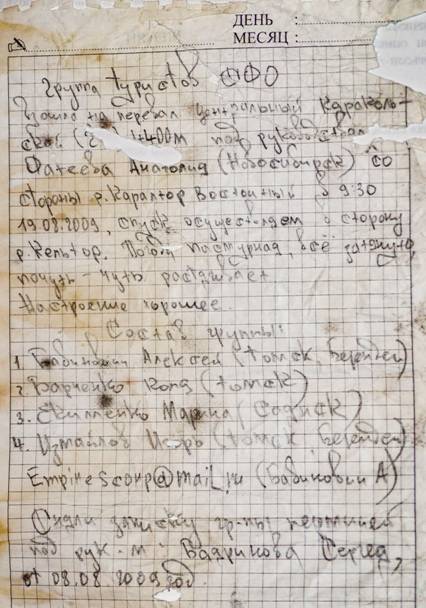 ДЕНЬ :
МЕСЯЦ :
Группа туристов СФО
взошла на перевал Центральный Караколь-
ский (2 4400м под руководством
Фатеева Анатолия (Новосибирск) со
стороны р. Каралтор Восточный в 9:30
19.08.2009, спуск осуществляем в сторону
р. Кельтор. Погода пасмурная, всё затянуто,
чуть растягивает
Настроение хорошее.
Состав группы:
1. Бабинович Алексей (Томск, Берендеи)
2. Варченко Костя (Томск)
3. Екименко Марина (
4. Измайлов Игорь (Томск, Берендеи)
Empirescorp@mail.ru (Бабинович А)
Сняли записку гр-пы
под рук-м Бадрикова Сергея,
от 08.08 2009 год.